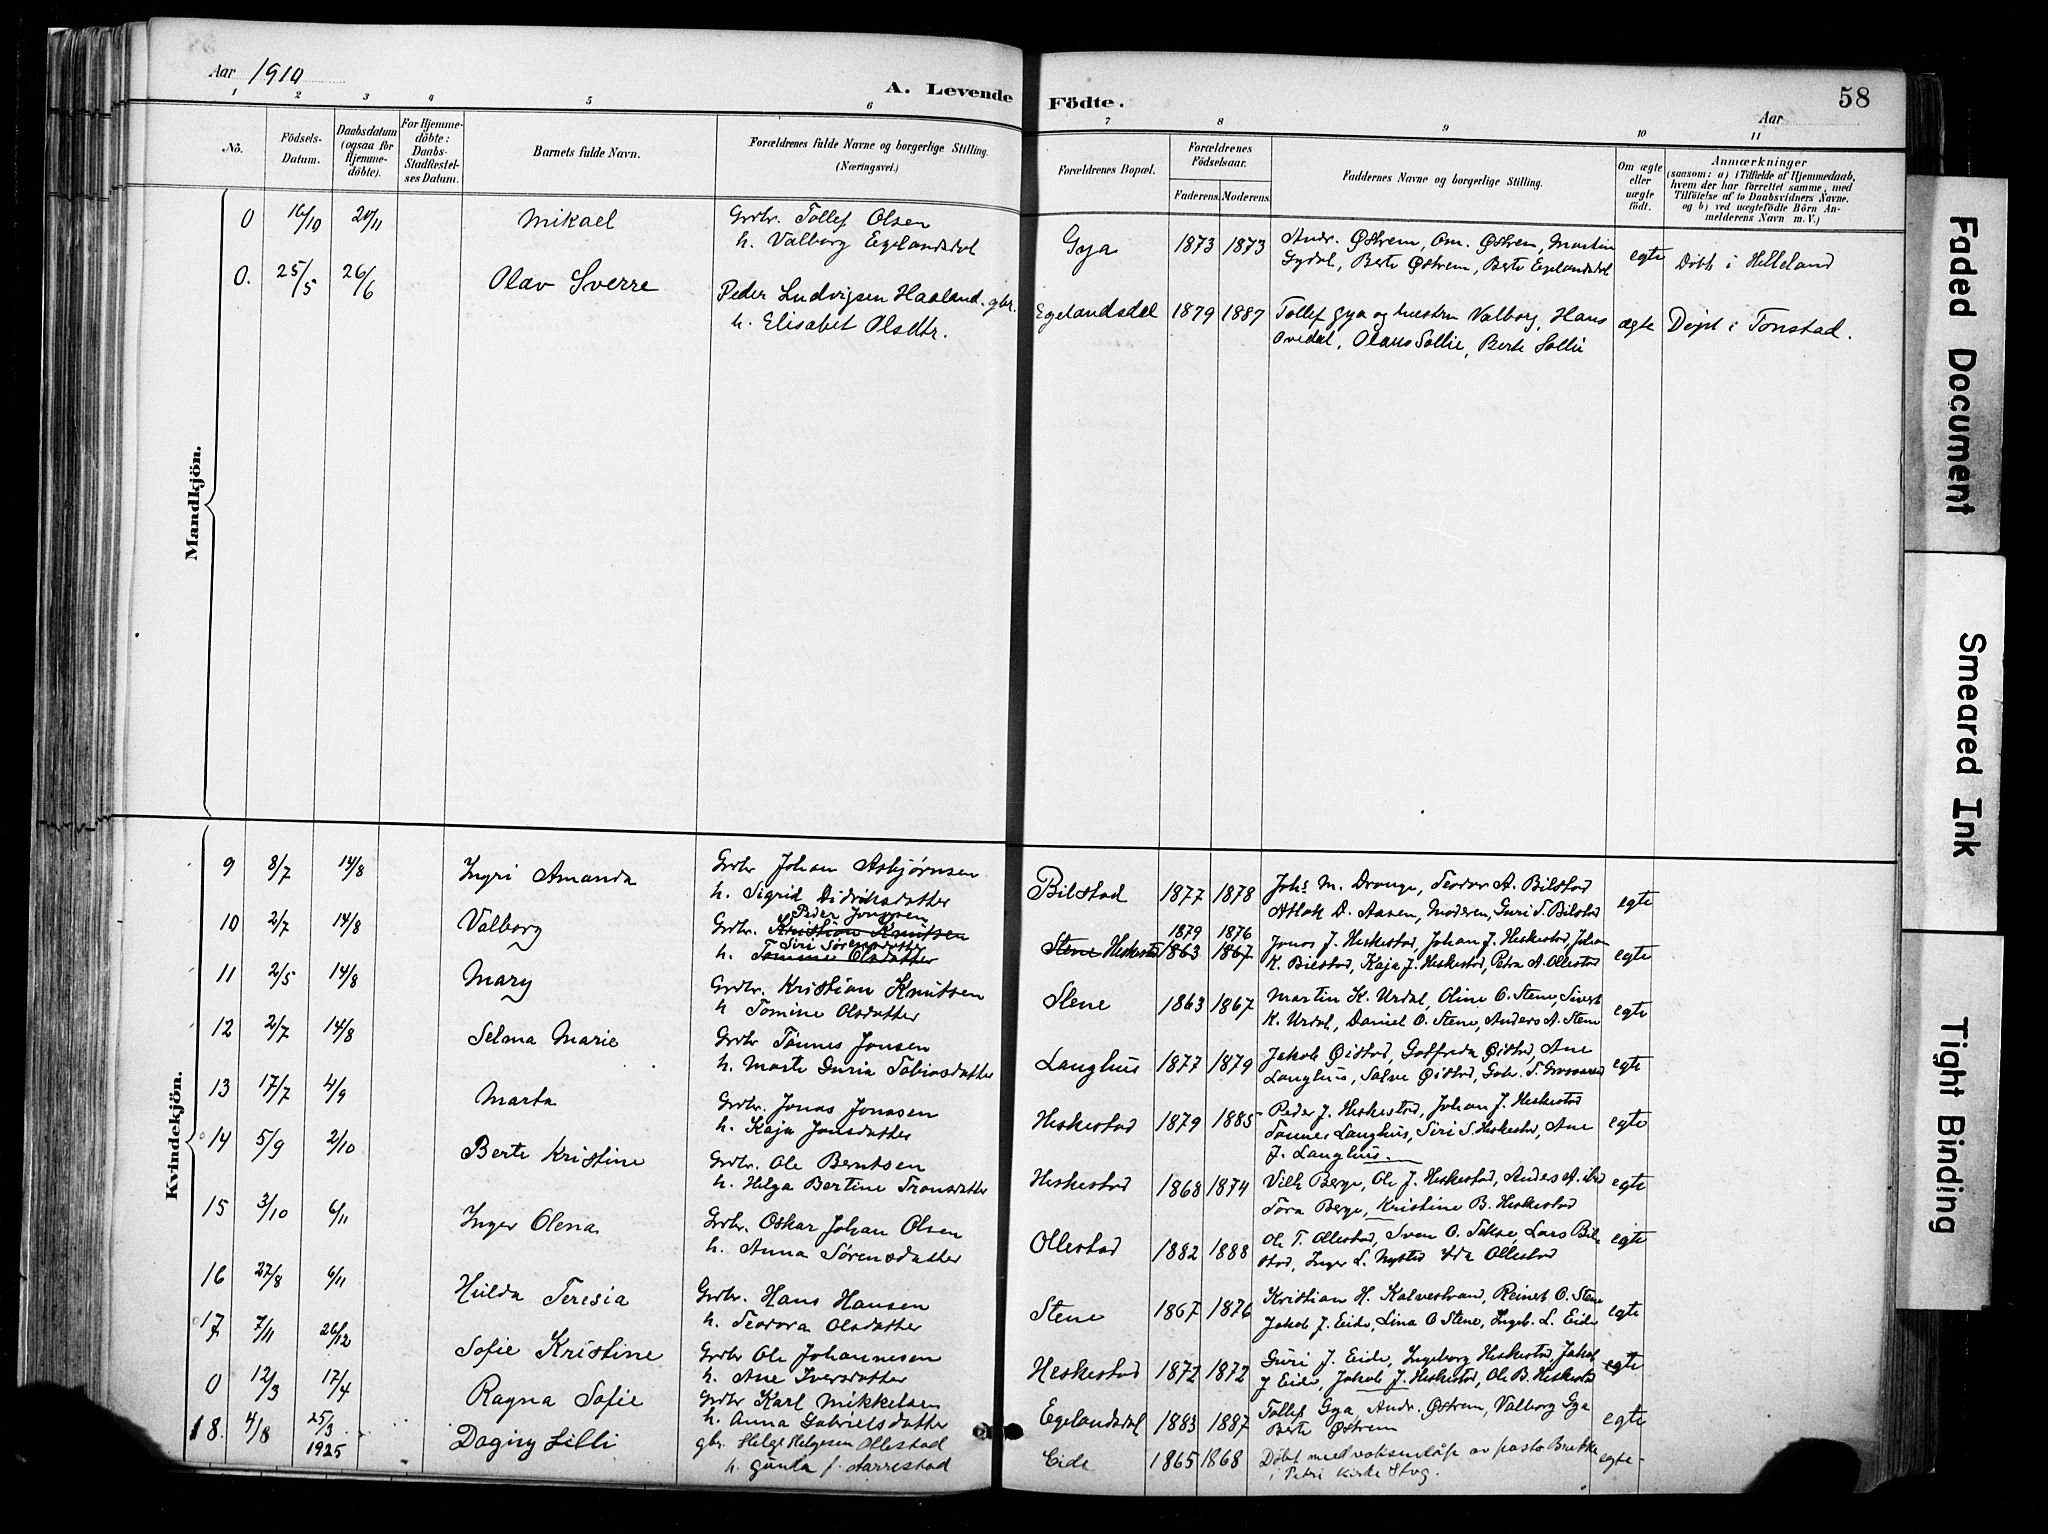 Aar 1910
A. Levende Födte.
58
Aar
1 2 3 4 5 6 7 8 9 10 11
Nô.
Födsels-Datum.
Daabsdatum (ogsaa for Hjemme-döbte).
For Hjemme-döbte: Daabs-Stadfæstel-ses Datum.
Barnets fulde Navn.
Forældrenes fulde Navne og borgerlige Stilling. (Næringsvei.)
Forældrenes Bopæl.
Forældrenes Födselsaar.
Faderens. Moderens.
Faddernes Navne og borgerlige Stilling.
Om ægte eller uægte født.
Anmærkninger
(saasom: a) i Tilfælde af Hjemmedaab,
hvem der har forrettet samme, med
Tilföielse af to Daabsvidners Navne.
og b) ved uægtefödte Börn An-
melderens Navn m. V.)
Mandkjön.
0 16/10 20/11 Mikael Grdbr. Tollef Olsen
h. Valborg Egelandsdal
Gya 1873 1873 Andr. Østrem, Om. Østrem, Martin
Gydal, Berte Østrem, Berte Egelandsdal
egte Döbt i Helleland
0. 25/5 26/6 Olav Sverre Peder Ludvigsen Haaland. gbr.
h. Elisabet Olsdtr.
Egelandsdal 1879 1887 Tollef Gya og hustru Valborg, Hans
Ovedal, Olaus Sollie, Berte Sollie
ægte Døpt i Tonstad.
Kvindekjön.
9 8/7 14/8 Ingri Amanda Grdbr Johan Asbjørnsen
h. Sigrid Didriksdatter
Bilstad 1877 1878 Johs M. Drange, Teodor A. Bilstad
Atlak D. Aasen, Moderen, Guri T. Bilstad
egte
10 2/7 14/8 Valborg Peder Jonassen
Grdbr. Kristian Knutsen
Siri Sørensdatter
h. Tomine Olsdatter
Stene Heskestad 1879 1876
1863 1867
Jonas J. Heskestad, Johan J. Heskestad, Johan
K. Bilstad, Kaja J. Heskestad, Petra A. Ollestad
egte
11 2/5 14/8 Mary Grdbr. Kristian Knutsen
h Tomine Olsdatter
Stene 1863 1867 Martin K. Urdal, Oline O. Stene, Sivert
K. Urdal, Daniel O. Stene, Anders A. Stene
egte
12 2/7 14/8 Selma Marie Grdbr Tønnes Jonsen
h. Marte Guria Tobiasdatter
Langhus 1877 1879 Jakob Øistad, Gotfreda Øistad, Ane
Langhus, Salve Øistad, Gabr. T.
egte
13 17/7 4/9 Marta Grdbr. Jonas Jonasen
h. Kaja Jonsdatter
Heskestad 1879 1885 Peder J. Heskestad, Johan J. Heskestad
Tønnes Langhus, Siri S. Heskestad, Ane
J. Langhus.
egte
14 5/9 2/10 Berte Kristine Grdbr. Ole Berntsen
h. Helga Bertine Tronsdatter
Heskestad 1868 1874 Vilh Berge, Ole J. Heskestad, Andes A. ibid
Tora Berge, Kristine B. Heskestad
egte
15 3/10 6/11 Inger Olena Grdbr. Oskar Johan Olsen
h. Anna Sørensdatter
Ollestad 1882 1888 Ole T. Ollestad, Sven O. Lars Bil-
stad, Inger L. Nysted Ida Ollestad
egte
16 27/8 6/11 Hulda Teresia Grdbr. Hans Hansen
h. Teodora Olsdatter
Stene 1867 1876 Kristian H. Kalvestrand, Reinert O. Stene
Jakob J. Eide, Lina O Stene, Ingeb. L. Eide
egte
17 7/11 26/12 Sofie Kristine Grdbr Ole Johannesen
h. Ane Iversdatter
Heskestad 1872 1872 Guri J. Eide, Ingeborg Heskestad, Jakob
J Eide, Jakob J. Heskestad, Ole B. Heskestad
egte
0 12/3 17/4 Ragna Sofie Grdbr Karl Mikkelsen
h. Anna Gabrielsdatter
Egelandsdal 1883 1887 Tollef Gya, Andr. Østrem, Valborg Gya
Berte Østrem
egte
18. 4/8 25/3 1925 Dagny Lilli gbr. Helge Helgesen Ollestad
h. Gunda f. Aarrestad
Eide 1865 1868 Döbt med voksendåp av pastor Brekke
i Petri kirke Stvg.
egte-
Faded Document
Smeared Ink
Tight Binding